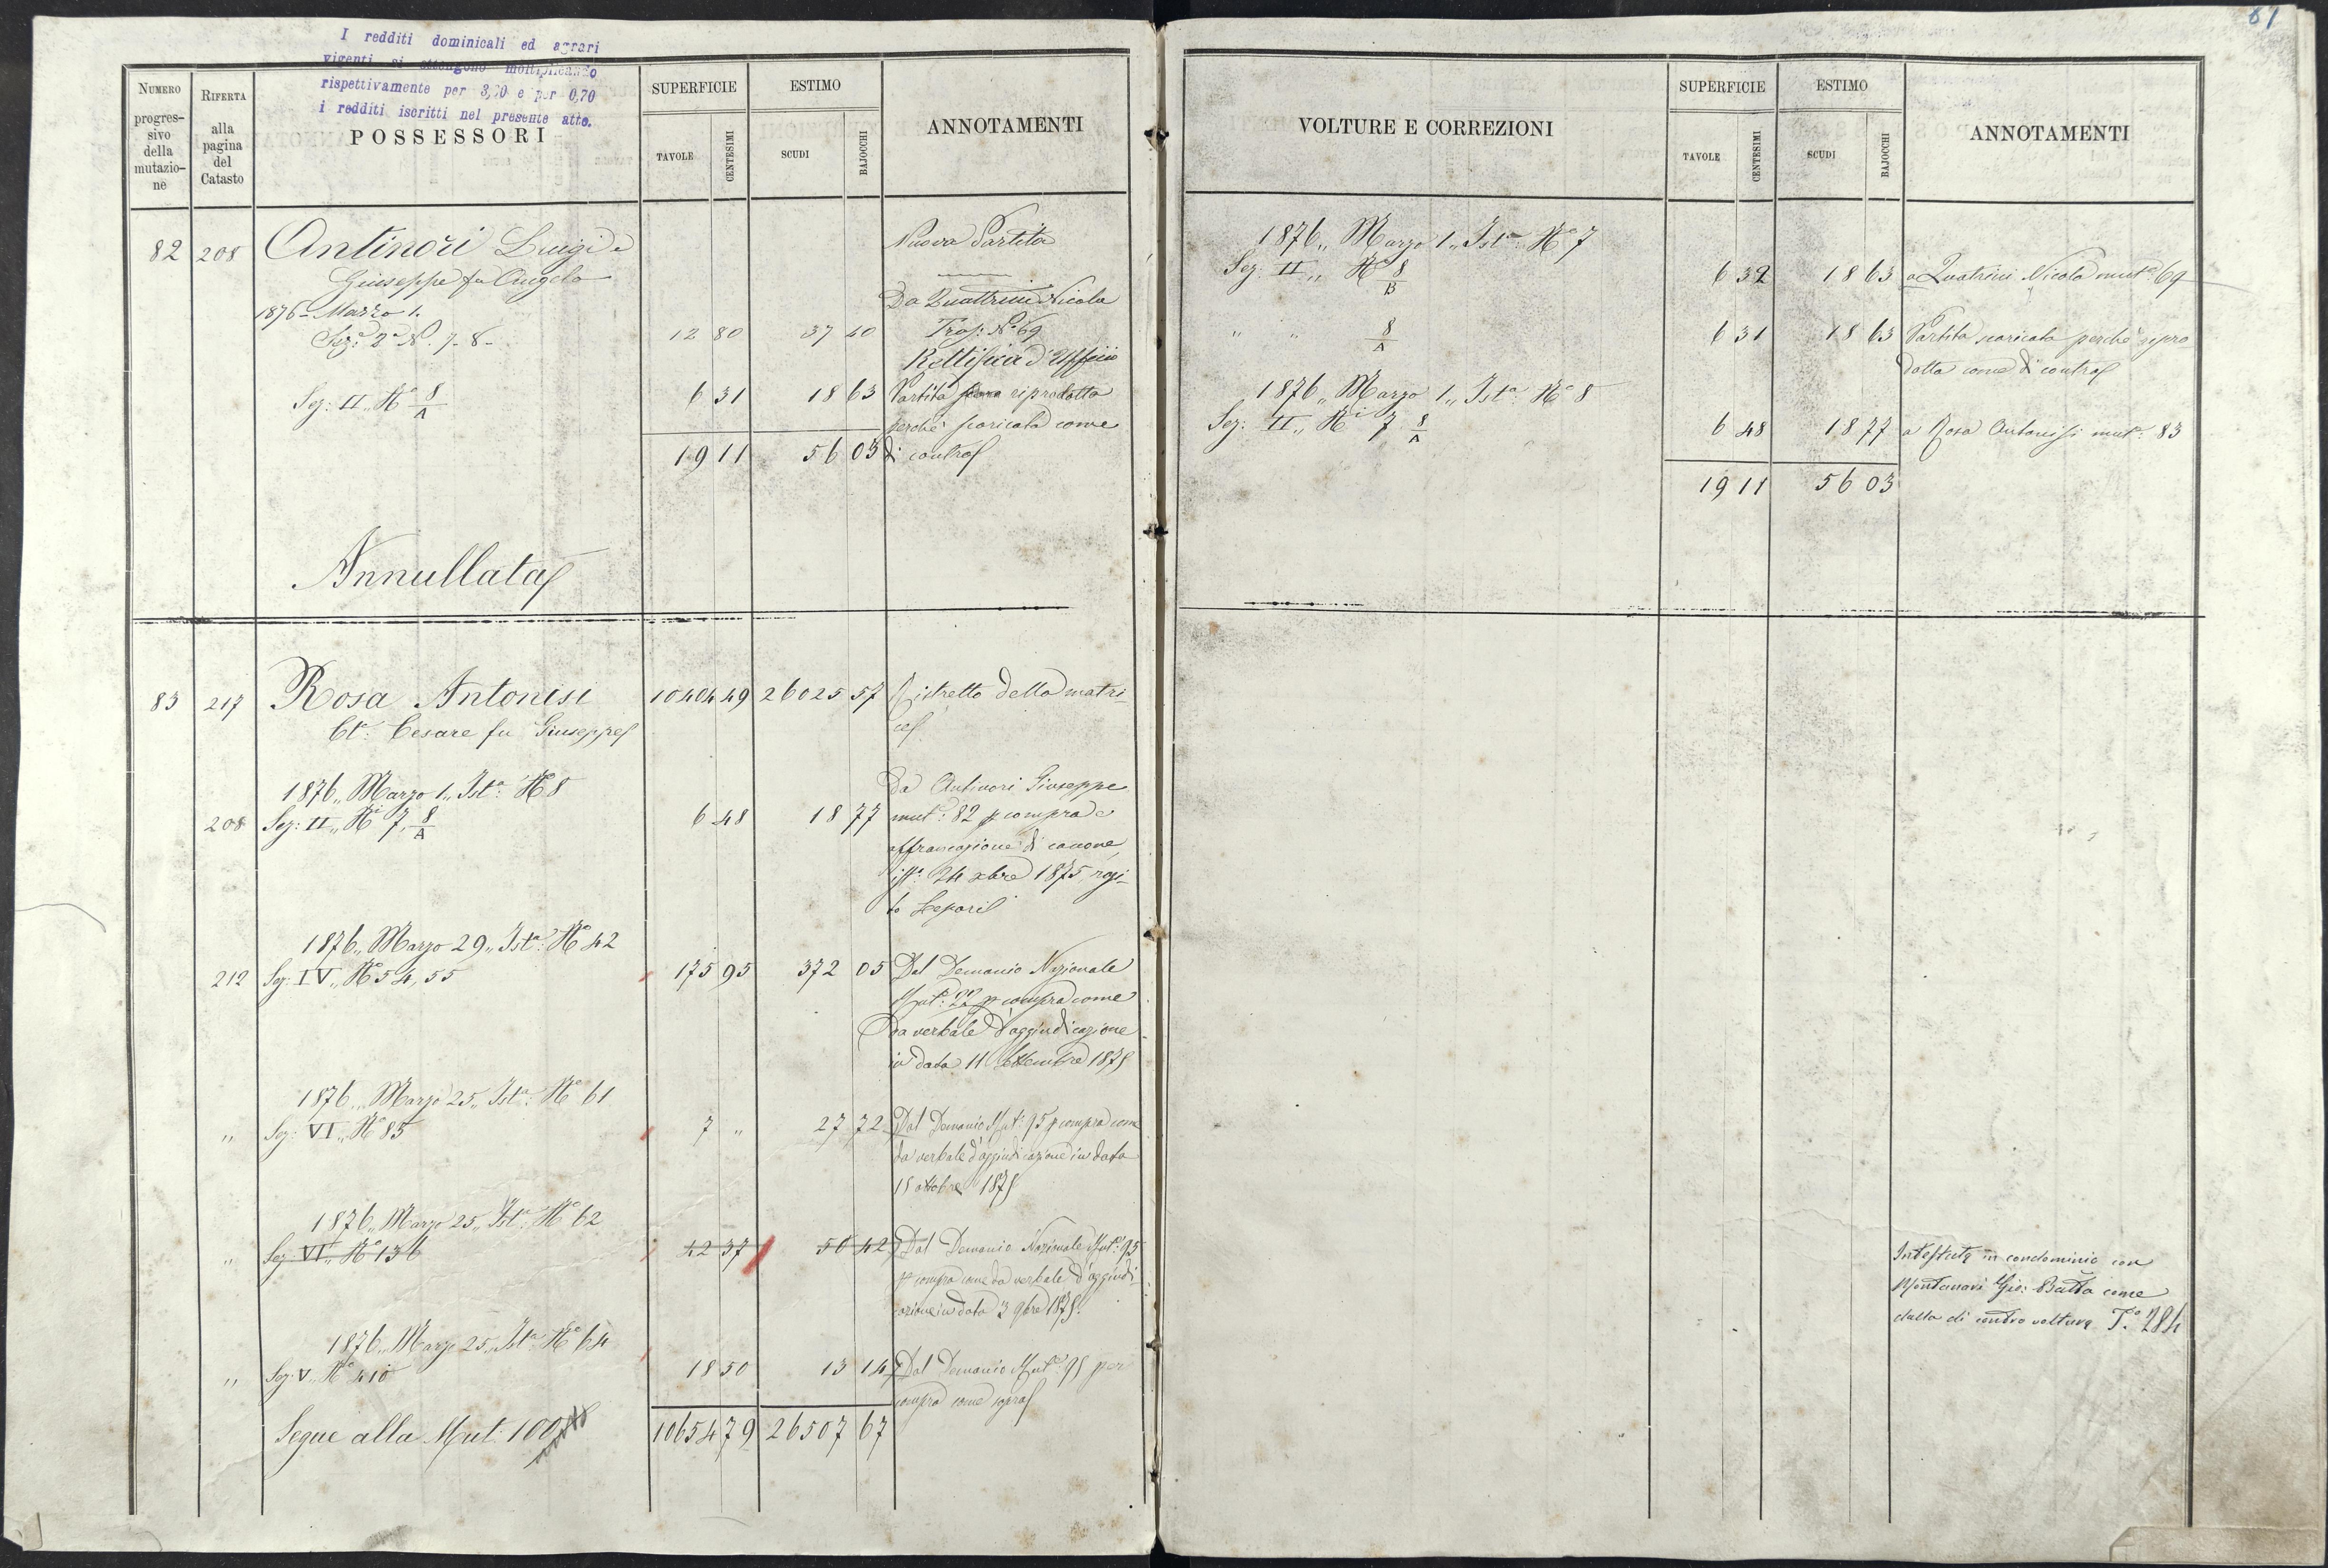 I redditi dominicali ed agrari
vigenti si ottengono moltiplicando
rispettivamente per 3,20 e per 0,70
i redditi iscritti nel presente atto.
NUMERO progres- sivo della mutazio- ne
RIFERTA alla pagina del Catasto
POSSESSORI
SUPERFICIE
TAVOLE
CENTESIMI
ESTIMO
SCUDI
BAJOCCHI
ANNOTAMENTI
82 208 Antinori Luigi e
Giuseppe fu Angelo
Nuova Partita
1876 - Marzo 1.
Da Quattrini Nicola
Sez: 2a N. 7-8- 12 80 37 40 Tras: No 69
Rettifica d'Officio
Sez: II,, No 8/A 6 31 18 63 Partita riprodotta
perché scaricata come
19 11 56 03 di contro
Annullata
83 217 Rosa Antonisi 10404 49 26025 57 Ristretto della matri-
ce
Ct: Cesare fu Giuseppe
1876,, Marzo 1,, Ista: No 8
Da Antinori Giuseppe
208 Sez: II,, Ni 7, 8/A 6 48 18 77 mut: 82 p compra e
affrancazione di canone,
ist: 24 xbre 1875 rogi-
to Lepori
1876,, Marzo 29,, Ista: No 42
212 Sez: IV,, No 54, 55 175 95 372 05 Dal Demanio Nazionale
Mut: 22 p compra come
da verbale d'aggiudicazione
in data 11 Settembre 1875
1876,, Marzo 25,, Ista: No 61
,, Sez: VI,, No 85 7 ,, 27 72 Dal Demanio Mut: 95 p compra come
da verbale d'aggiudicazione in data
15 ottobre 1875
1876,, Marzo 25,, Ista: No 62
,, Sez: VI,, No 136 42 37 50 42 Dal Demanio Nazionale Mut: 95
p compra come da verbale d'aggiudi
cazione in data 3 9bre 1875.
1876,, Marzo 25,, Ista: No 64
,, Sez: V,, No 410 18 50 13 14 Dal Demanio Mut: 95 per
compra come sopra
Segue alla Mut: 100 10654 79 26507 67
81
VOLTURE E CORREZIONI
SUPERFICIE
TAVOLE
CENTESIMI
ESTIMO
SCUDI
BAJOCCHI
ANNOTAMENTI
1876,, Marzo 1,, Ista: No 7
Sez: II,, No 8/B 6 32 18 63 a Quatrini Nicola muta: 69
,, ,, 8/A 6 31 18 63 Partita scaricata perché ripro
dotta come di contro
1876,, Marzo 1,, Ista: No 8
Sez: II,, Ni 7 8/A 6 48 18 77 a Rosa Antonisi mut: 83
19 11 56 03
Intestata in condominio con
Montanari Gio: Batta come
dalla di contro voltura T.o 284